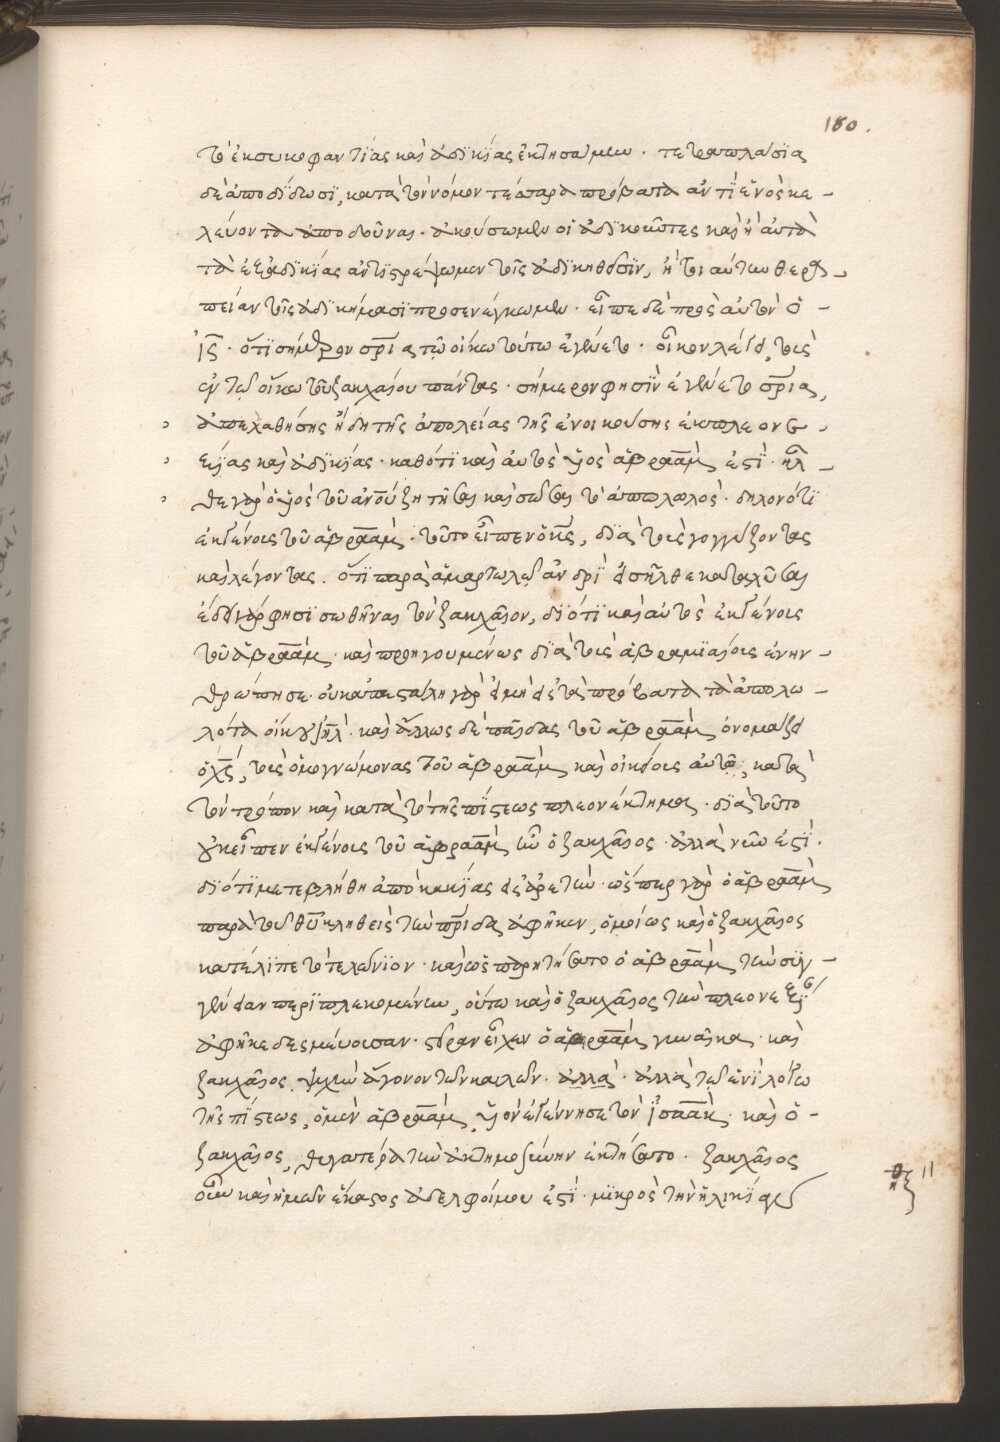 180.
τὸ ἐκ συκοφαντίας καὶ ἀδικίας ἐκτησάμην. τετραπλασία
δὲ ἀποδίδωσι, κατὰ τὸν νόμον τέσσαρα πρόβατα ἀντὶ ἑνὸς κε-
λεύοντα ἀποδοῦναι. ἀκούσωμεν οἱ ἀδικοῦντες καὶ ἢ αὐτὰ
τὰ ἐξ ἀδικίας ἀντιστρέψωμεν τοῖς ἀδικηθεῖσιν, ἤτοι αὐτῶν θερα-
πείαν τοῖς ἀδικήμασι προσενέγκωμεν. εἶπε δὲ πρὸς αὐτὸν ὁ -
ις. ὅτι σήμερον σρια τῷ οἴκω τούτω ἐγένετο. οἶκον λέγει, τοὺς
ἐν τῷ οἴκω τοῦ ζακχαίου πάντας. σήμερον φησὶν ἐγένετο σρια,
ἀπελαθήσης ἤδη τῆς ἀπολείας τῆς ἐνοικούσης ἐκ πλεονε-
ξίας καὶ ἀδικίας. καθότι καὶ αὐτὸς υἱὸς ἀβραάμ ἐστί. ἦλ-
θε γὰρ ὁ υἱὸς τοῦ ανου ζητῆσαι καὶ σῶσαι τὸ ἀπολωλός. δηλονότι
ἐκ γένους τοῦ ἀβραάμ. τοῦτο εἶπεν ὁ κς, διὰ τοὺς γογγύζοντας
καὶ λέγοντας. ὅτι παρὰ ἁμαρτωλῷ ἀνδρὶ εἰσῆλθε καταλῦσαι
ἔδει γάρ φησι σωθῆναι τὸν ζακχαῖον, διότι καὶ αὐτὸς ἐκ γένους
τοῦ ἀβραάμ. καὶ προηγουμένως διὰ τοὺς ἀβραμιαίους ἐνην-
θρώπησε. οὐκ ἀπεστάλη γὰρ εἰ μὴ εἰς τὰ πρόβατα τὰ ἀπολω-
λότα οἴκου ιηλ. καὶ ἄλλως δὲ παῖδας τοῦ ἀβραάμ ὀνομάζει
ὁ χς, τοὺς ὁμογνώμονας τοῦ ἀβραάμ καὶ οἰκείους αὐτῷ, κατὰ
τὸν τρόπον καὶ κατὰ τὸ τῆς πίστεως πλεονέκτημα. διὰ τοῦτο
οὐκ εἶπεν ἐκ γένους τοῦ ἀβραάμ ἦν ὁ ζακχαῖος. ἀλλὰ νῦν ἐστί.
διότι μετεβλήθη ἀπὸ κακίας εἰς ἀρετήν. ὥσπερ γὰρ ὁ ἀβραάμ
παρὰ τοῦ θυ κληθεὶς τὴν πρίδα ἀφῆκεν, ὁμοίως καὶ ὁ ζακχαῖος
κατέλιπε τὸ τελώνιον. καὶ ὡς παρητήσατο ὁ ἀβραάμ τὴν συγ-
γένειαν περιπλεκομένην, οὕτω καὶ ὁ ζακχαῖος τὴν πλεονεξίαν
ἀφῆκε δεσμεύουσαν. στεῖραν εἶχεν ὁ ἀβραάμ γυναῖκα. καὶ
ζακχαῖος, ψυχὴν ἄγονον τῶν καλῶν. ἀλλὰ. ἀλλὰ τῷ ἑνὶ λόγω
τῆς πίστεως, ὁ μὲν ἀβραάμ, υἱὸν ἐγέννησε τὸν ἰσαάκ. καὶ ὁ -
ζακχαῖος, θυγατέρα τὴν ἀκτημοσύνην ἐκτήσατο. ζακχαῖος
οὖν καὶ ἡμῶν ἕκαστος ἀδελφοί μου ἐστί. μικρὸς τὴν ἡλικίαν